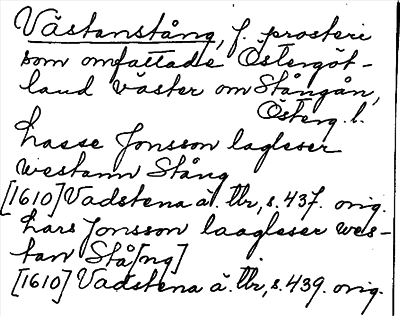 Västanstång, f. prosteri
som omfattade Östergöt-
land väster om Stångån,
Österg. l.
Lasse Jonsson lagleser
westann Stång
[1610] Vadstena ä. Tb, s. 437. orig.
Lars Jonsson laagleser wes-
tan Stå[ng]
[1610] Vadstena ä. Tb, s. 439. orig.